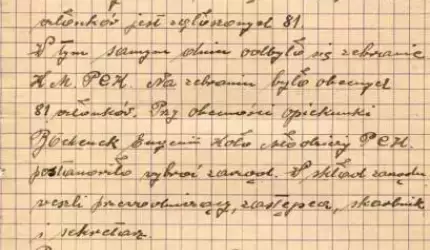 członków jest zgłoszonych 81.
W tym samym dniu odbyło się zebranie
K.M. P.C.K. Na zebraniu było obecnych
81 członków. Przy obecności opiekunki
Eugenii Koło Młodzieży P.C.K.
postanowiło wybrać zarząd. W skład zarządu
weszli przewodniczący, zastępca, skarbnik
i sekretarz.